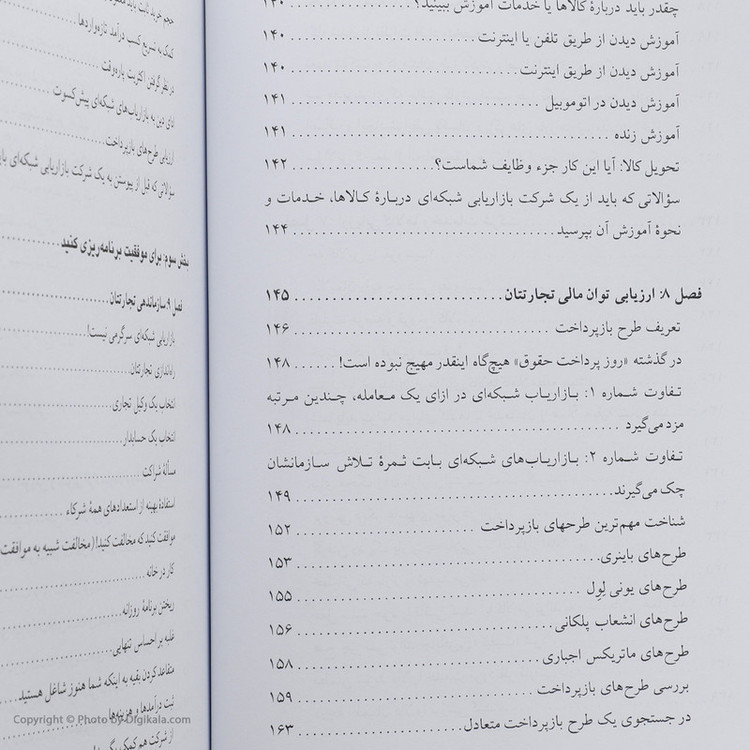 چقدر باید دربارهٔ کالاها یا خدمات آموزش ببینید؟ ۱۴۰
آموزش دیدن از طریق تلفن یا اینترنت ۱۴۰
آموزش دیدن از طریق اینترنت ۱۴۰
آموزش دیدن در اتوموبیل ۱۴۱
آموزش زنده ۱۴۱
تحویل کالا: آیا این کار جزء وظایف شماست؟ ۱۴۲
سؤالاتی که باید از یک شرکت بازاریابی شبکه‌ای دربارهٔ کالاها، خدمات و
نحوهٔ آموزش آن بپرسید ۱۴۴
فصل ۸: ارزیابی توان مالی تجارتتان ۱۴۵
تعریف طرح بازپرداخت ۱۴۶
در گذشته «روز پرداخت حقوق» هیچ‌گاه اینقدر مهیج نبوده است! ۱۴۸
تفاوت شماره ۱: بازاریاب شبکه‌ای در ازای یک معامله، چندین مرتبه
مزد می‌گیرد ۱۴۸
تفاوت شماره ۲: بازاریاب‌های شبکه‌ای بابت ثمرهٔ تلاش سازمانشان
چک می‌گیرند ۱۴۹
شناخت مهم‌ترین طرحهای بازپرداخت ۱۵۲
طرح‌های باینری ۱۵۳
طرح‌های یونی لِوِل ۱۵۵
طرح‌های انشعاب پلکانی ۱۵۶
طرح‌های ماتریکس اجباری ۱۵۸
بررسی طرح‌های بازپرداخت ۱۵۹
در جستجوی یک طرح بازپرداخت متعادل ۱۶۳
کمک به تسریع کسب درآمد تازه‌واردها
در نظر گرفتن اکثریت پاره‌وقت
ادای دین به بازاریاب‌های شبکه‌ای پیش‌کسوت
ارزیابی طرح‌های بازپرداخت
سؤالاتی که قبل از پیوستن به یک شرکت بازاریابی شبکه‌ای
بخش سوم: برای موفقیت برنامه‌ریزی کنید
فصل ۹: سازماندهی تجارتتان
بازاریابی شبکه‌ای سرگرمی نیست!
راه‌اندازی تجارتتان
انتخاب یک وکیل تجاری
انتخاب یک حسابدار
مسألهٔ شراکت
استفادهٔ بهینه از استعدادهای همهٔ شرکاء
موافقت کنید که مخالفت کنید! (مخالفت شبیه به موافقت
کار در خانه
ریختن برنامهٔ روزانه
غلبه بر احساس تنهایی
متقاعد کردن بقیه به اینکه شما هنوز شاغل هستید
ثبت درآمدها و هزینه‌ها
Copyright © Photo By Digikala.com